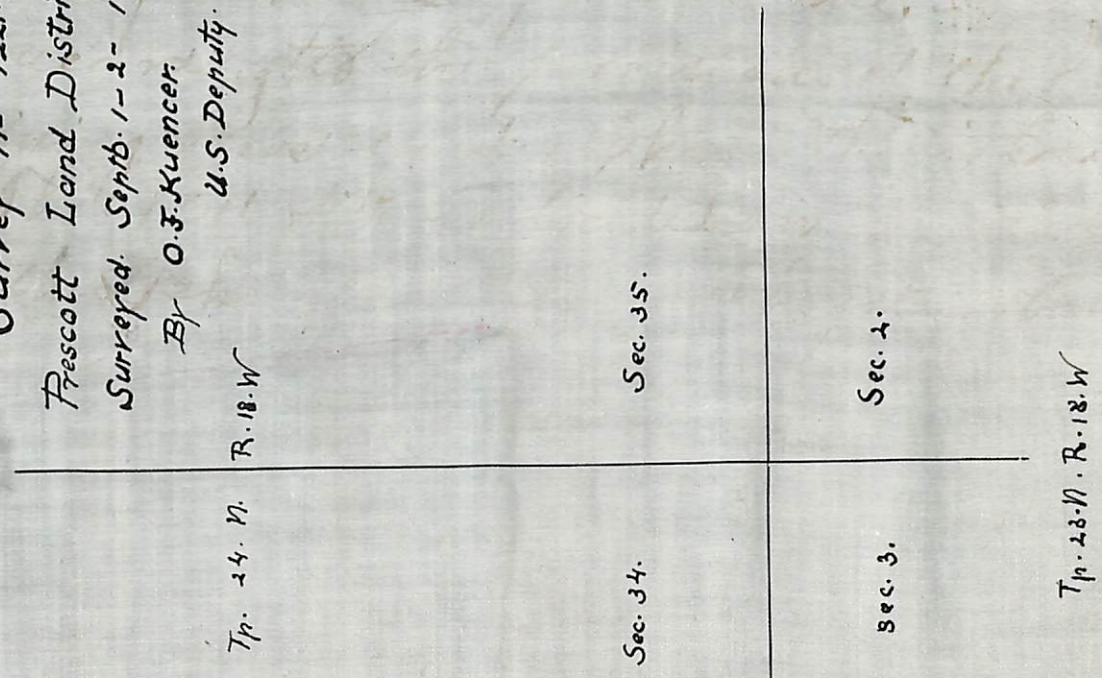 Prescott Land
Surveyed. Septb. 1-2-
By O.F. Kuencer.
U.S. Deputy.
Tp. 24. N. R. 18. W
Sec. 34. Sec. 35.
Sec. 3. Sec. 2.
Tp. 23. N. R. 18. W